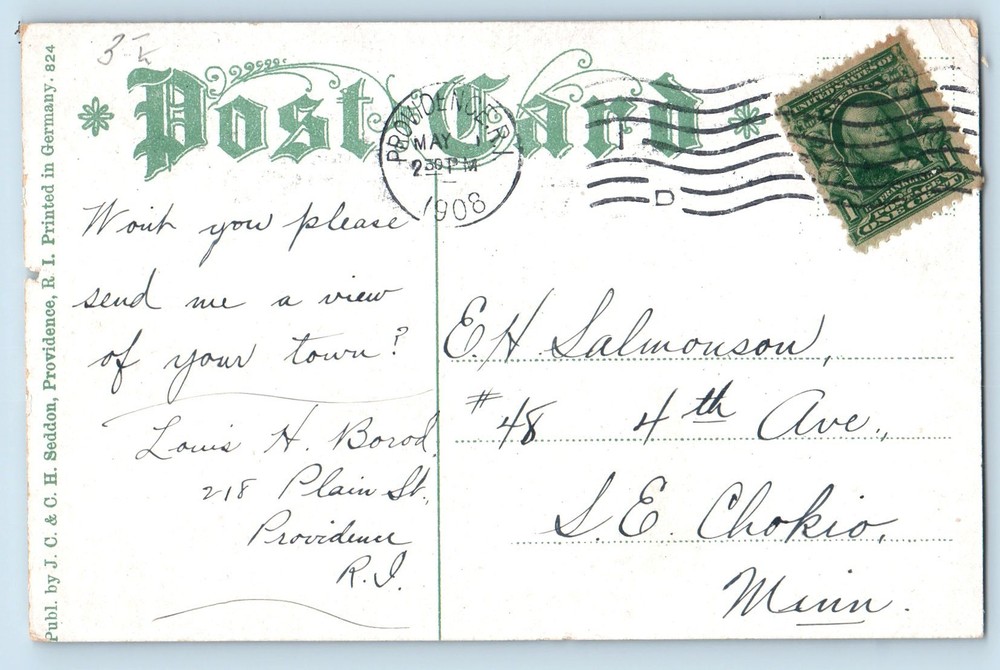 3
Post Card
PROVIDENCE, R.I.
MAY
230 PM
1908
D
UNITED STATES OF
AMERICA
FRANKLIN
POSTAGE
1 ONE CENT 1
Wont you please
send me a view
of your town?
Louis H. Borod
218 Plain St.,
Providence
R.I.
E. H. Salmonson,
#48 4th Ave.,
S. E. Chokio,
Minn.
Publ. by J. C. & C. H. Seddon, Providence, R. I. Printed in Germany. 824